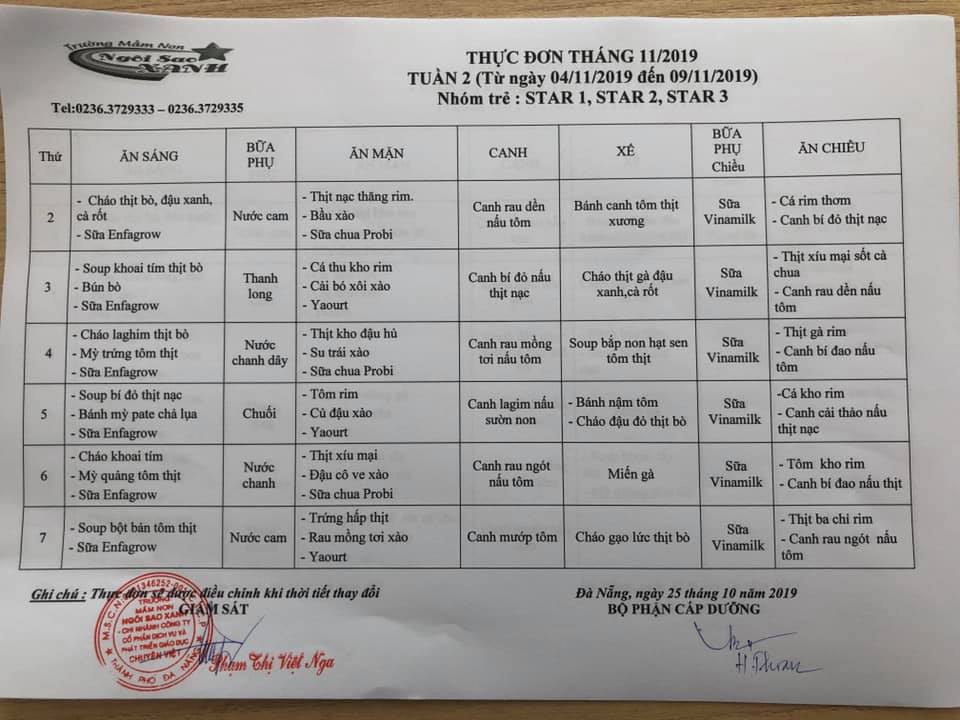 Trường Mầm Non
Ngôi Sao
XANH
Tel:0236.3729333 – 0236.3729335
THỰC ĐƠN THÁNG 11/2019
TUẦN 2 (Từ ngày 04/11/2019 đến 09/11/2019)
Nhóm trẻ : STAR 1, STAR 2, STAR 3
Thứ
ĂN SÁNG
BỮA
PHỤ
ĂN MẶN
CANH
XẾ
BỮA
PHỤ
Chiều
ĂN CHIỀU
2
- Cháo thịt bò, đậu xanh,
cà rốt
- Sữa Enfagrow
Nước cam
- Thịt nạc thăng rim.
- Bầu xào
- Sữa chua Probi
Canh rau dền
nấu tôm
Bánh canh tôm thịt
xương
Sữa
Vinamilk
- Cá rim thơm
- Canh bí đỏ thịt nạc
3
- Soup khoai tím thịt bò
- Bún bò
- Sữa Enfagrow
Thanh
long
- Cá thu kho rim
- Cải bó xôi xào
- Yaourt
Canh bí đỏ nấu
thịt nạc
Cháo thịt gà đậu
xanh,cà rốt
Sữa
Vinamilk
- Thịt xíu mại sốt cà
chua
- Canh rau dền nấu
tôm
4
- Cháo laghim thịt bò
- Mỳ trứng tôm thịt
- Sữa Enfagrow
Nước
chanh dây
- Thịt kho đậu hủ
- Su trái xào
- Sữa chua Probi
Canh rau mồng
tơi nấu tôm
Soup bắp non hạt sen
tôm thịt
Sữa
Vinamilk
- Thịt gà rim
- Canh bí đao nấu
tôm
5
- Soup bí đỏ thịt nạc
- Bánh mỳ pate chả lụa
- Sữa Enfagrow
Chuối
- Tôm rim
- Củ đậu xào
- Yaourt
Canh lagim nấu
sườn non
- Bánh nậm tôm
- Cháo đậu đỏ thịt bò
Sữa
Vinamilk
-Cá kho rim
- Canh cải thảo nấu
thịt nạc
6
- Cháo khoai tím
- Mỳ quảng tôm thịt
- Sữa Enfagrow
Nước
chanh
- Thịt xíu mại
- Đậu cô ve xào
- Sữa chua Probi
Canh rau ngót
nấu tôm
Miến gà
Sữa
Vinamilk
- Tôm kho rim
- Canh bí đao nấu thịt
7
- Soup bột bán tôm thịt
- Sữa Enfagrow
Nước cam
- Trứng hấp thịt
- Rau mồng tơi xào
- Yaourt
Canh mướp tôm
Cháo gạo lức thịt bò
Sữa
Vinamilk
- Thịt ba chỉ rim
- Canh rau ngót nấu
tôm
Ghi chú : Thực đơn sẽ được điều chỉnh khi thời tiết thay đổi
GIÁM SÁT
TRƯỜNG
MẦM NON
NGÔI SAO XANH
- CHI NHÁNH CÔNG TY
CỔ PHẦN DỊCH VỤ VÀ
PHÁT TRIỂN GIÁO DỤC
CHUYÊN VIỆT
THÀNH PHỐ ĐÀ NẴNG
Phạm Thị Việt Nga
Đà Nẵng, ngày 25 tháng 10 năm 2019
BỘ PHẬN CẤP DƯỠNG